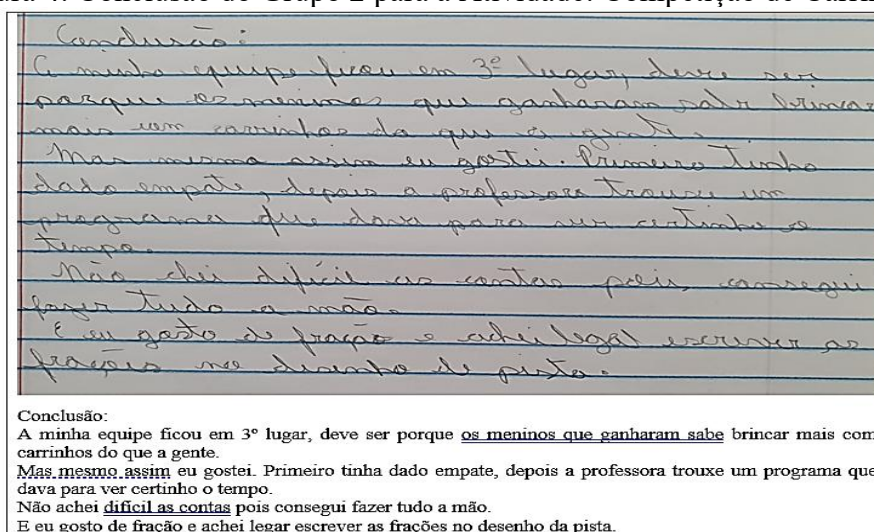 Conclusão:
A minha equipe ficou em 3º lugar, deve ser
porque os meninos que ganharam sabe brincar
mais com carrinhos do que a gente.
Mas mesmo assim eu gostei. Primeiro tinha
dado empate, depois a professora trouxe um
programa que dava para ver certinho o
tempo.
Não chei difícil as contas pois, consegui
fazer tudo a mão.
E eu gosto de fração e achei legal escrever as
frações no desenho da pista.
Conclusão:
A minha equipe ficou em 3º lugar, deve ser porque os meninos que ganharam sabe brincar mais com
carrinhos do que a gente.
Mas mesmo assim eu gostei. Primeiro tinha dado empate, depois a professora trouxe um programa que
dava para ver certinho o tempo.
Não achei difícil as contas pois consegui fazer tudo a mão.
E eu gosto de fração e achei legar escrever as frações no desenho da pista.